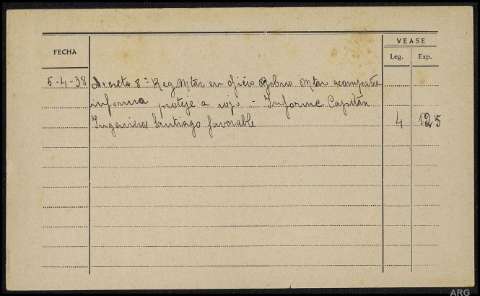 VEASE
FECHA
Leg. Exp.
5-4-38 Decreto 8ª Reg Mtar en oficio Gobno Mtar acompaña
informa protege a rojos - Informe Capitán
Ingenieros Santiago favorable 4 125
ARG